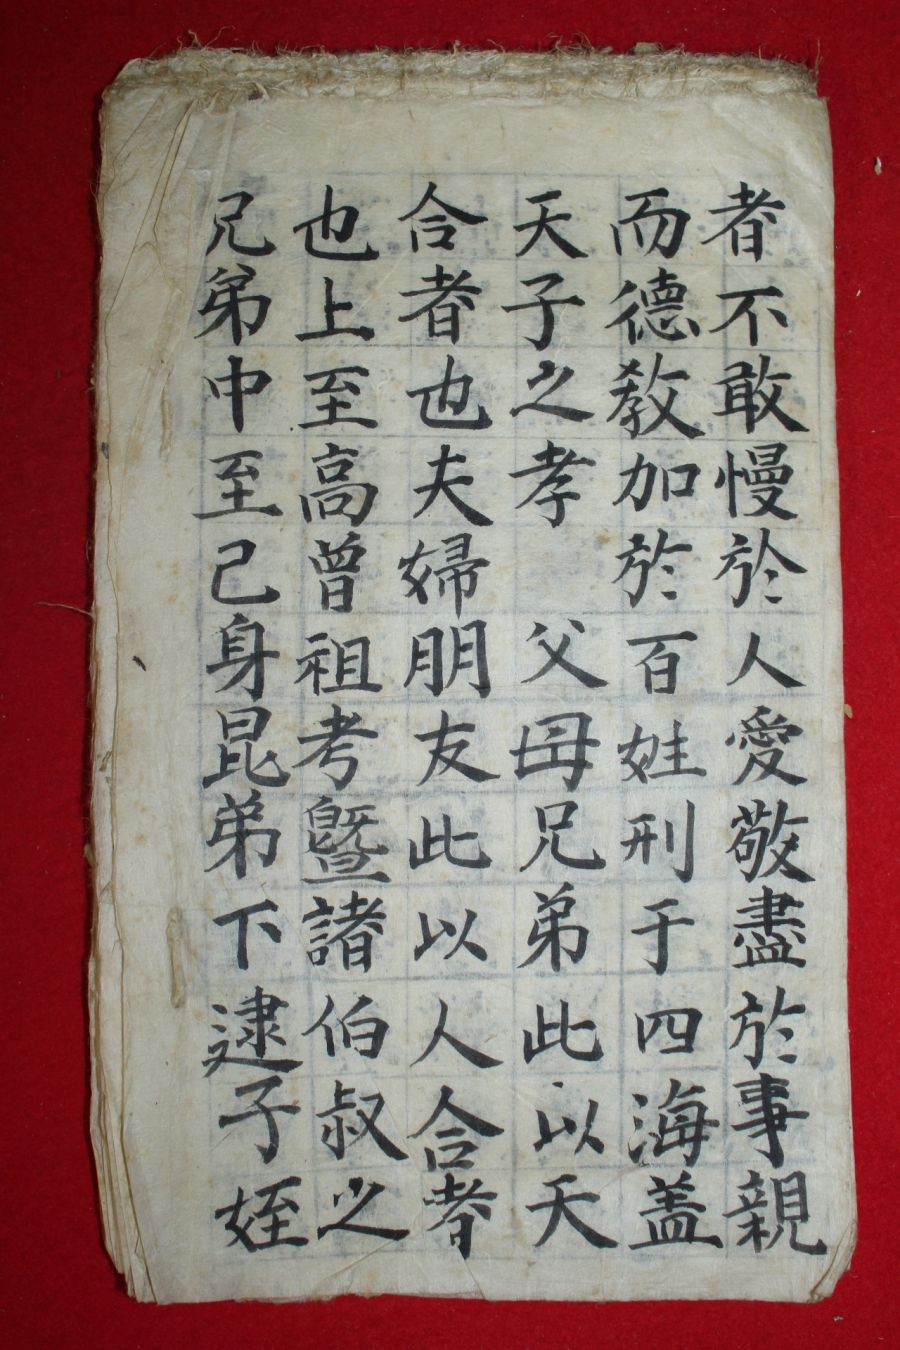 者不敢慢於人愛敬盡於事親
而德敎加於百姓刑于四海盖
天子之孝 父母兄弟此以天
合者也夫婦朋友此以人合者
也上至高曾祖考曁諸伯叔之
兄弟中至己身昆弟下逮子姪